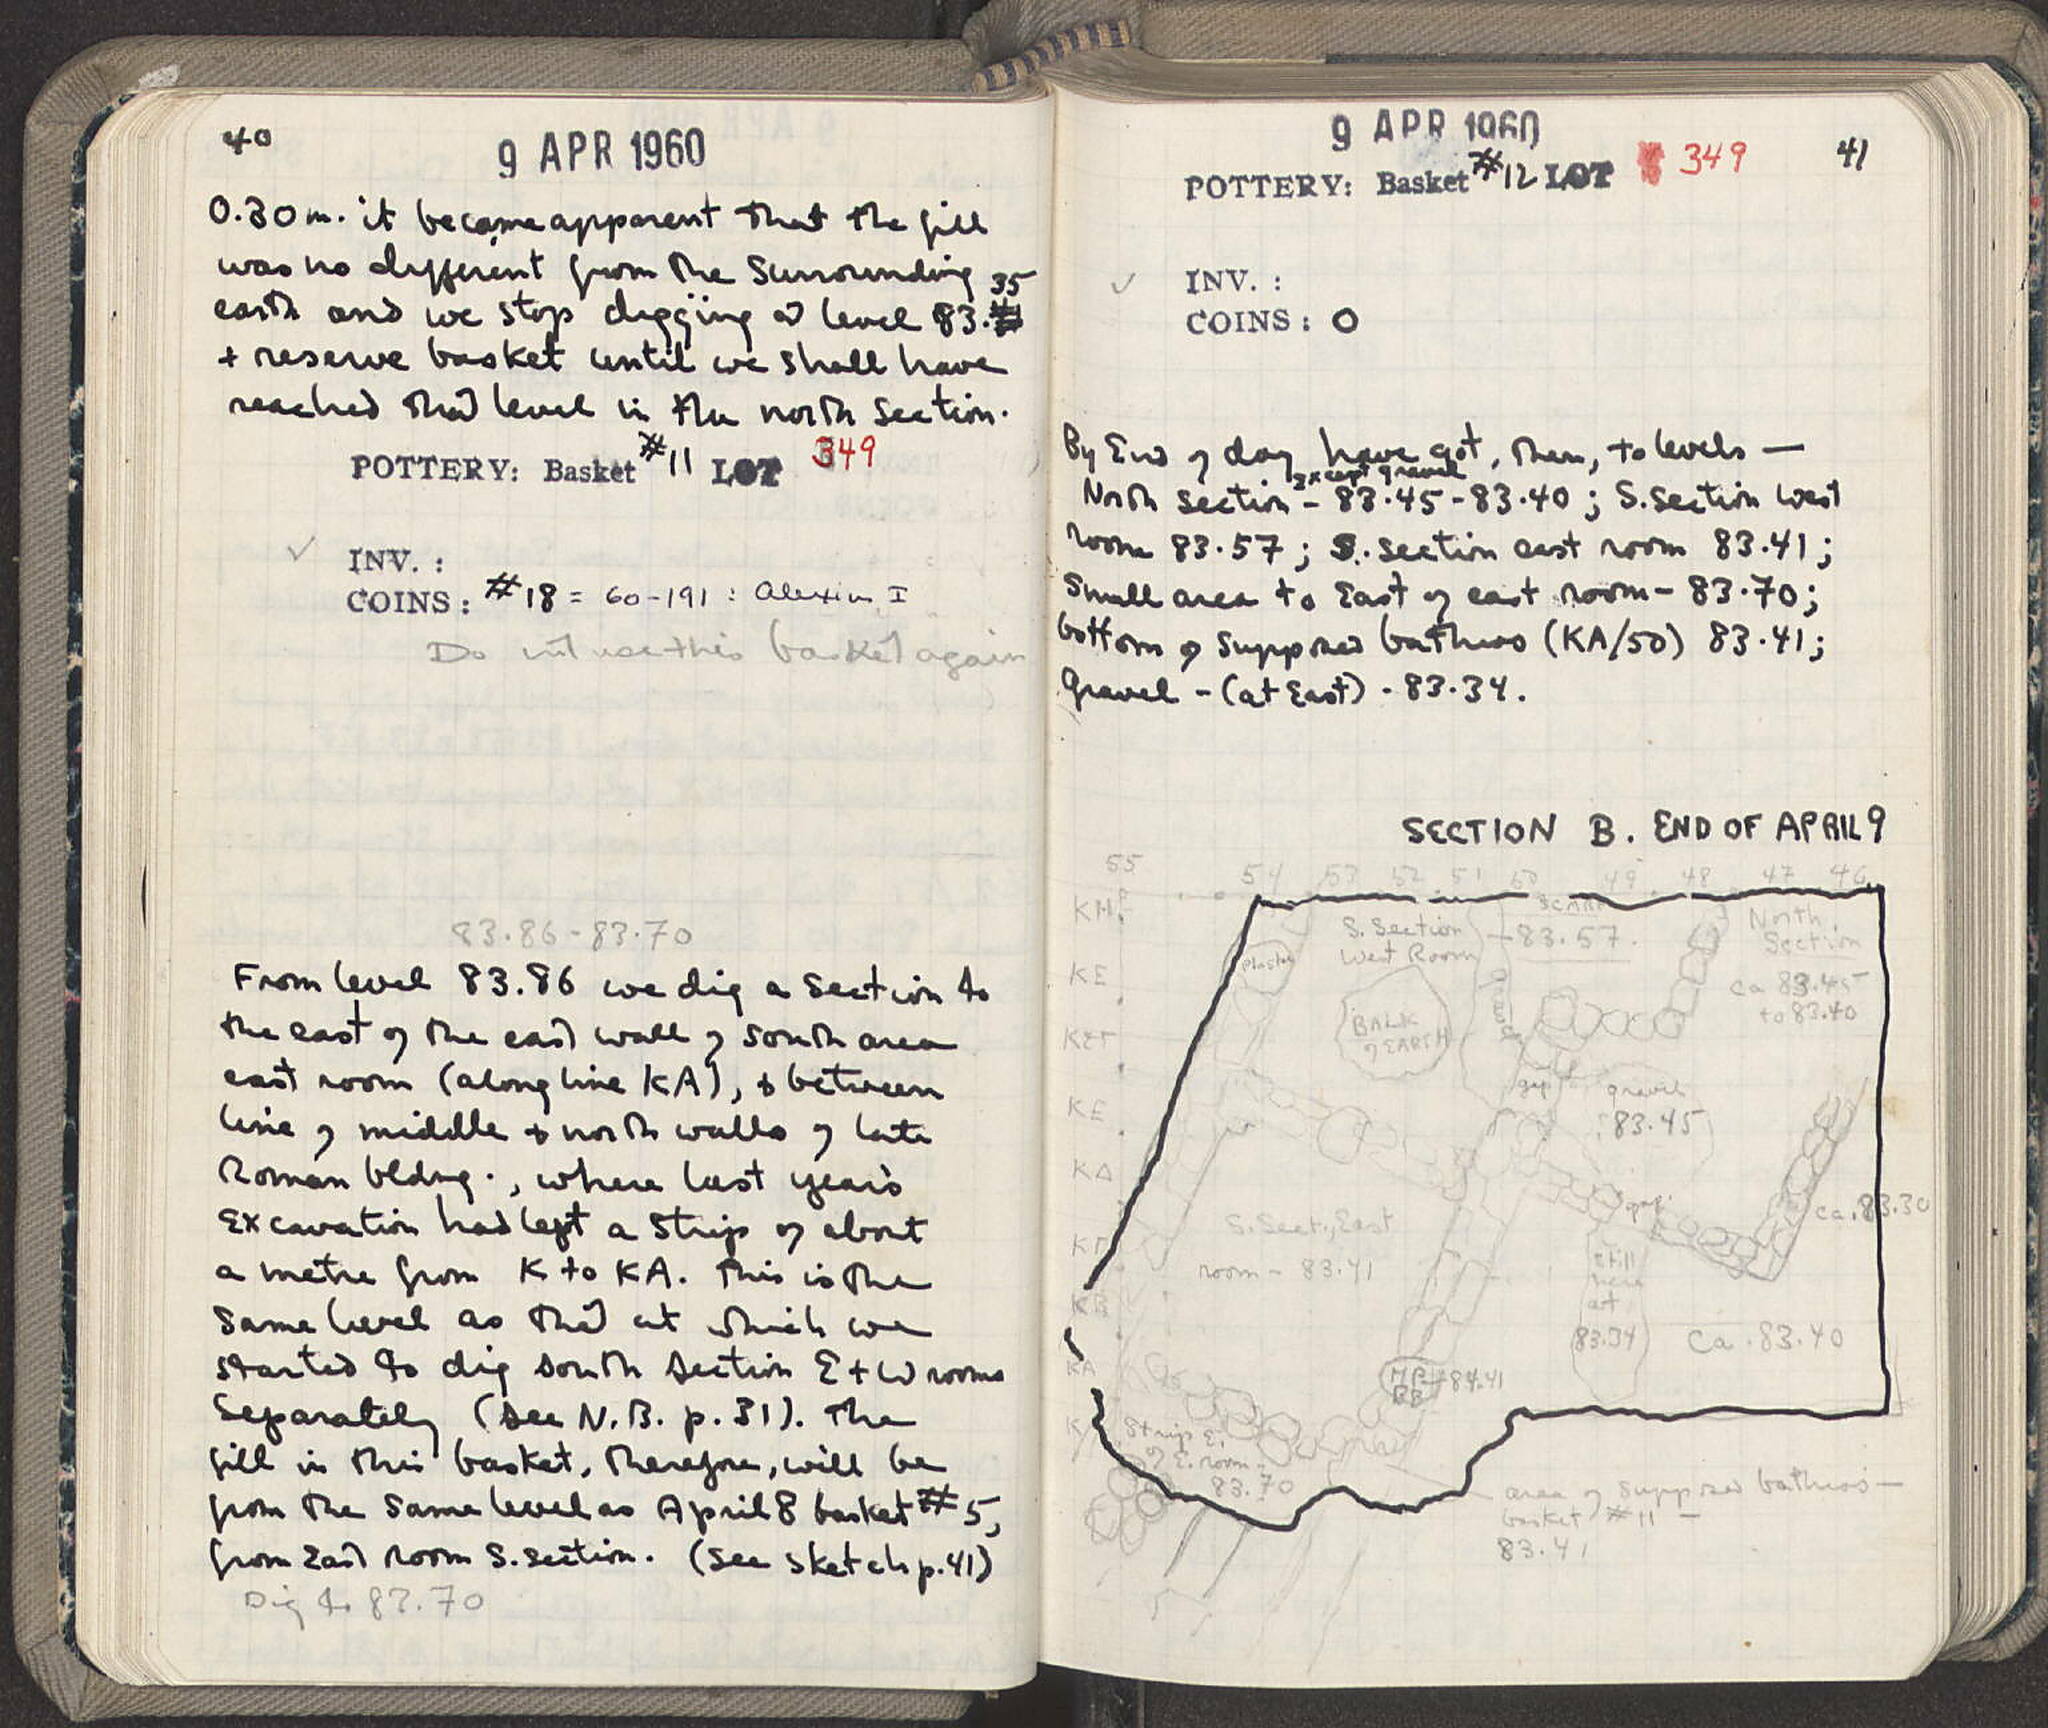 40
9 APR 1960
0.30m. it became apparent that the fill
was no different from the surrounding
earth and we stop digging at level 83.35
+ reserve basket until we shall have
reached that level in the north section.
POTTERY: Basket #11 LOT 349
INV. :
COINS: #18 = 60-191 : Alexius I
Do not use this basket again
83.86 - 83.70
From level 83.86 we dig a section to
the east of the east wall of south area
east room (along line KA), & between
line of middle & north walls of late
Roman bldng., where last year's
excavation had left a strip of about
a metre from K to KA. This is the
same level as that at which we
started to dig south section E + W rooms
separately (see N.B. p. 31). The
fill in this basket, therefore, will be
from the same level as April 8 basket #5,
from East room S. section. (see sketch p. 41)
Dig to 83.70
9 APR 1960
41
POTTERY: Basket #12 LOT 349
INV. :
COINS: 0
By End of day have got, then, to levels —
North section - except gravel 83.45 - 83.40 ; S. section west
room 83.57 ; S. section east room 83.41 ;
Small area to East of east room - 83.70 ;
bottom of supposed bothros (KA/50) 83.41 ;
Gravel - (at East) - 83.34.
SECTION B. END OF APRIL 9
55 54 53 52 51 50 49 48 47 46
SCARP
S. Section
West Room
- 83.57.
North
Section
ca 83.45
to 83.40
plaster
gravel
KE
BALK
of EARTH
gap
gravel
83.45
KE
KΔ
gap
ca. 83.30
S. Sect., East
room - 83.41
KΓ
still
here
at
83.34
Ca. 83.40
KB
KA
84.41
K
Strip E.
of E. room -
83.70
area of supposed bothros —
basket #11 —
83.41